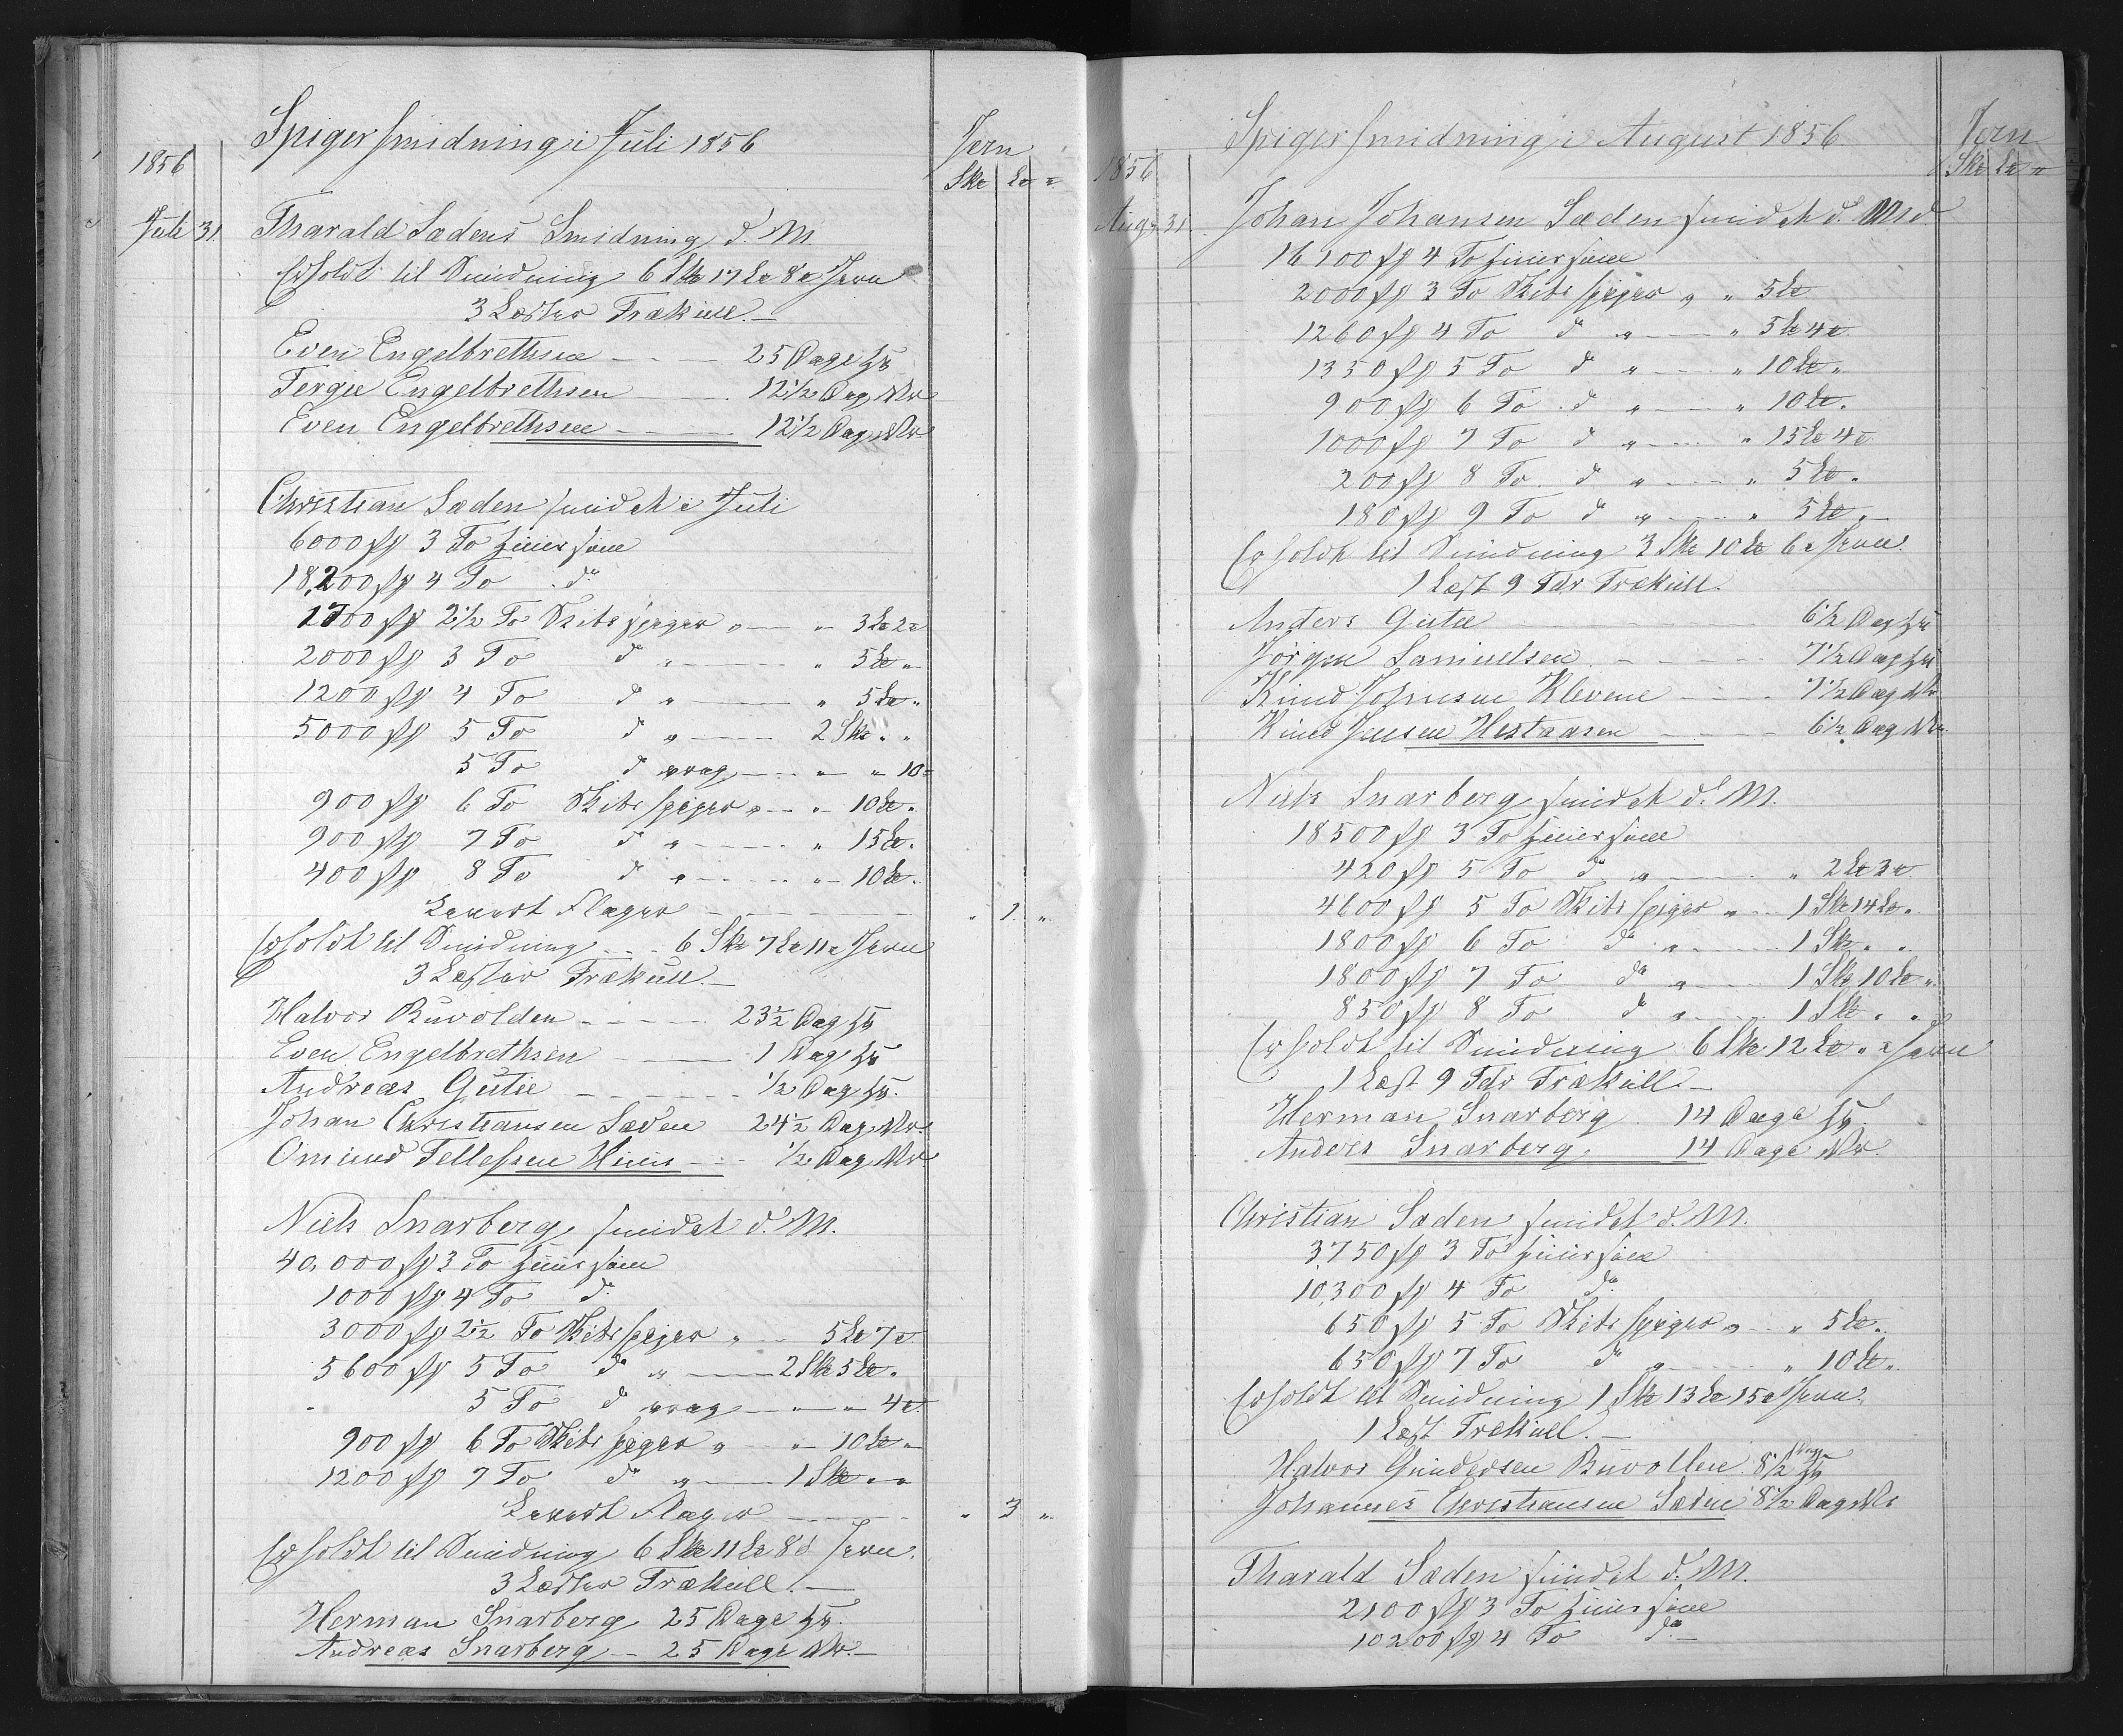 Spigersmidning i Juli 1856
Jern
1856
Sk℔ L℔ ℔
Juli 31. Tharald Sædens Smidning d. M.
Erholdt til Smidning 6 Sk℔ 17 L℔ 8 ℔ Jern
3 Læster Trækull. —
Even Engelbrethsen — 25 Dage
Terger Engelbrethsen — 12 1/2 Dag
Even Engelbrethsen — 12 1/2 Dag
Christian Sæden smidet i Juli
6000 st 3 To Huussøm
18,200 st 4 To do
1700 st 2 1/2 To Skibsspiger " — " 3 L℔ 2 ℔
2000 st 3 To do " — " 5 L℔ "
1200 st 4 To do " — " 5 L℔ "
5000 st 5 To do " — 2 Sk℔ " "
5 To do vrag — " " 10 ℔
900 st 6 To Skibsspiger " — " 10 L℔ "
900 st 7 To do " — " 15 L℔ "
400 st 8 To do " — " 10 L℔ "
Levert Flager — " 1 "
Erholdt til Smidning — 6 Sk℔ 7 L℔ 11 ℔ Jern
3 Læster Trækull. —
Halvor Ruvolden — 23 1/2 Dag
Even Engelbrethsen — 1 Dag
Andreas Gutu — 1/2 Dag
Johan Christiansen Sæden 24 1/2 Dag
Omund Tellefsen — 1/2 Dag
Niels Snarberg smidet d. M.
40,000 st 3 To Huussøm
1000 st 4 To do
3000 st 2 1/2 To Skibsspiger " — 5 L℔ 7 ℔
5600 st 5 To do " — 2 Sk℔ 5 L℔ "
5 To do vrag — " " 4 ℔
900 st 6 To Skibsspiger " — " 10 L℔ "
1200 st 7 To do " — 1 Sk℔ " "
Levert Flager — " 3 "
Erholdt til Smidning 6 Sk℔ 11 L℔ 8 ℔ Jern.
3 Læster Trækull. —
Herman Snarberg 25 Dage
Andreas Snarberg — 25 Dage
Spigersmidning i August 1856
Jern
1856
Sk℔ L℔ ℔
Aug. 31. Johan Johansen Sæden smidet d. Md.
16100 st 4 To Huussøm
2000 st 3 To Skibsspiger " " 5 L℔
1260 st 4 To do " — " 5 L℔ 4 ℔
1350 st 5 To do " — " 10 L℔ "
900 st 6 To do " — " 10 L℔ "
1000 st 7 To do " — " 15 L℔ 4 ℔
200 st 8 To do " — " 5 L℔ "
180 st 9 To do " — " 5 L℔ "
Erholdt til Smidning 3 Sk℔ 10 L℔ 6 ℔ Jern.
1 Læst 9 Tdr Trækull.
Anders Gutu — 6 1/2 Dag
Jörgen Samuelsen — 7 1/2 Dag
Knud Johnsen Klevene — 7 1/2 Dag
Knud Jensen Hestaasen — 6 1/2 Dag
Niels Snarberg smidet d. M.
18500 st 3 To Huussøm
420 st 5 To do " — " 2 L℔ 3 ℔
4600 st 5 To Skibsspiger " — 1 Sk℔ 14 L℔ "
1800 st 6 To do " — 1 Sk℔ " "
1800 st 7 To do " — 1 Sk℔ 10 L℔ "
850 st 8 To do " — 1 Sk℔ " "
Erholdt til Smidning 6 Sk℔ 12 L℔ " ℔ Jern
1 Læst 9 Tdr Trækull. —
Herman Snarberg 14 Dage
Anders Snarberg. 14 Dage
Christian Sæden smidet d. M.
3750 st 3 To Huussøm
10,300 st 4 To do
650 st 5 To Skibsspiger " — " 5 L℔ "
650 st 7 To do " — " 10 L℔ "
Erholdt til Smidning 1 Sk℔ 13 L℔ 15 ℔ Jern.
1 Læst Trækull. —
Halvor Gundersen Ruvollen 8 1/2 Dag
Johannes Christiansen Sæden 8 1/2 Dag
Tharald Sæden smidet d. M.
2100 st 3 To Huussøm
10200 st 4 To do —